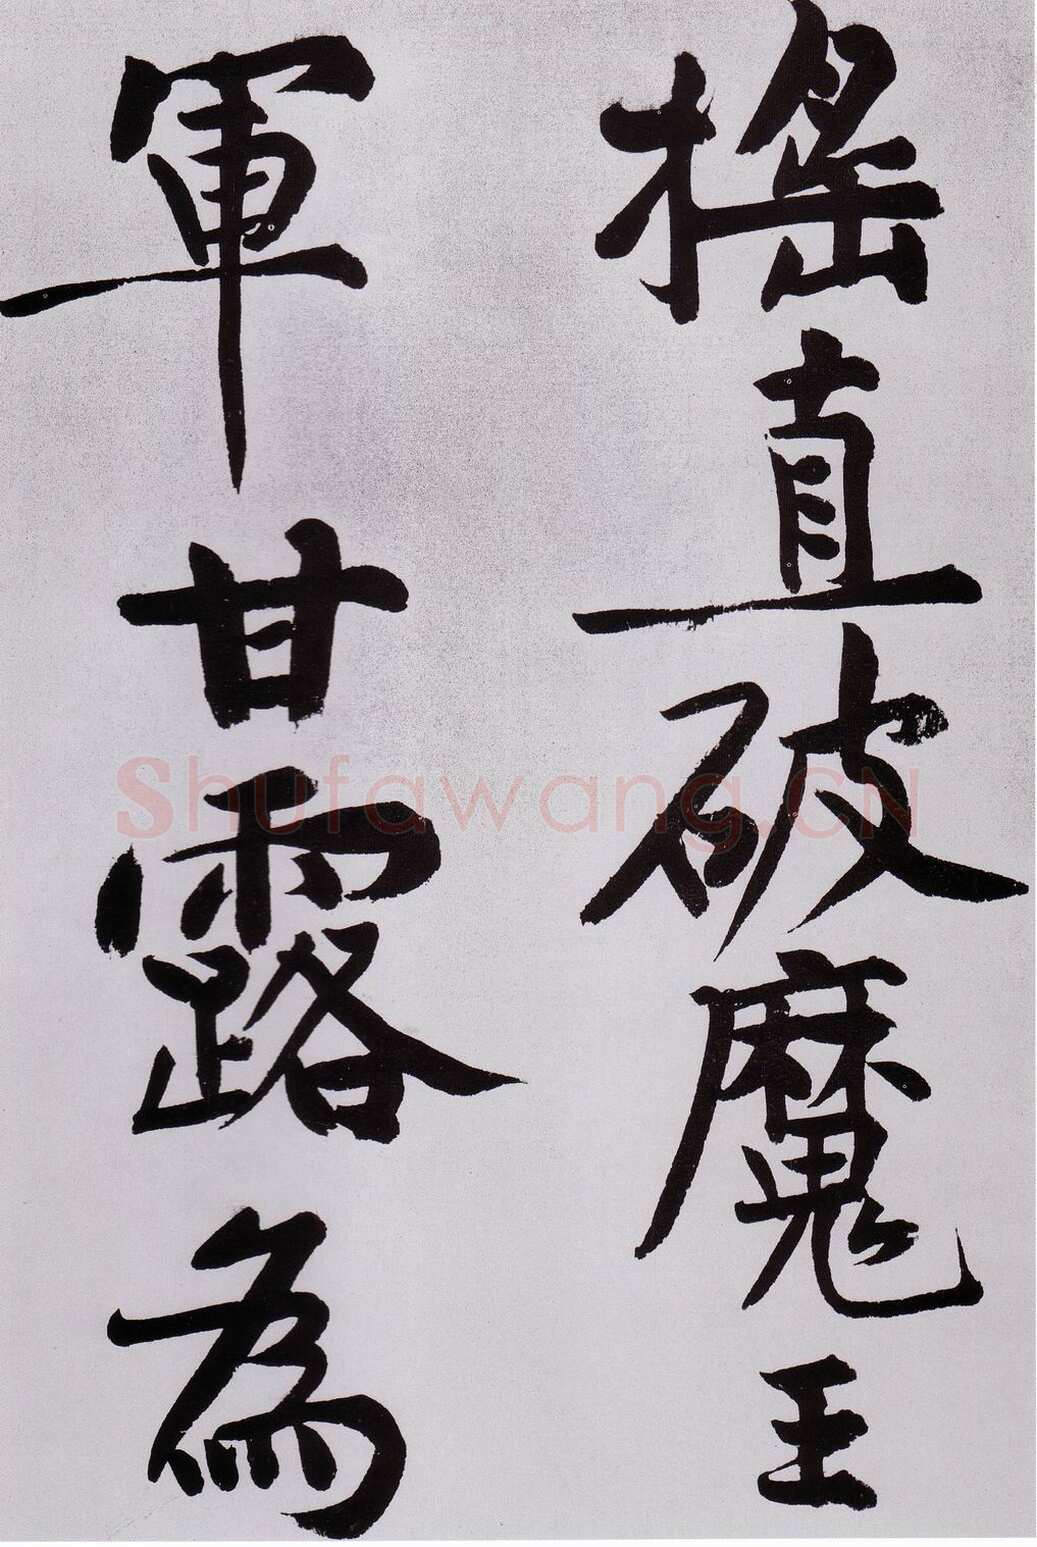 搖直破魔王
軍甘露為
Shufawang.CN